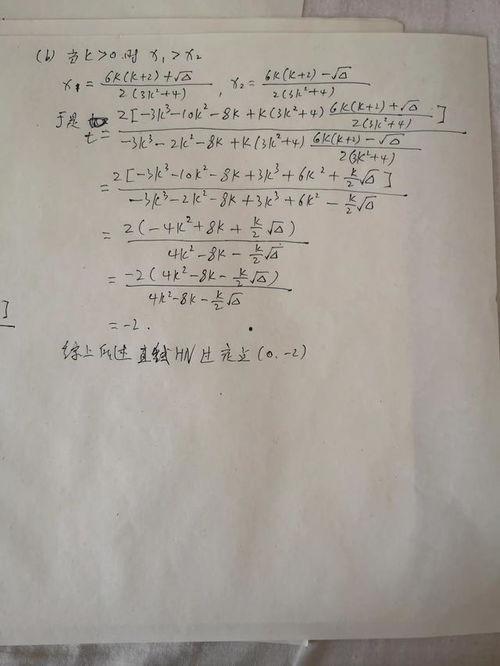 (b) 当 k>0 时 x₁>x₂
x₁ = \frac{6k(k+2)+\sqrt{Δ}}{2(3k²+4)} , x₂ = \frac{6k(k+2)-\sqrt{Δ}}{2(3k²+4)}
于是 t = \frac{2[-3k³-10k²-8k+k(3k²+4)\frac{6k(k+2)+\sqrt{Δ}}{2(3k²+4)}]}{-3k³-2k²-8k+k(3k²+4)\frac{6k(k+2)-\sqrt{Δ}}{2(3k²+4)}}
= \frac{2[-3k³-10k²-8k+3k³+6k²+\frac{k}{2}\sqrt{Δ}]}{-3k³-2k²-8k+3k³+6k²-\frac{k}{2}\sqrt{Δ}}
= \frac{2(-4k²+8k+\frac{k}{2}\sqrt{Δ})}{4k²-8k-\frac{k}{2}\sqrt{Δ}}
= \frac{-2(4k²-8k-\frac{k}{2}\sqrt{Δ})}{4k²-8k-\frac{k}{2}\sqrt{Δ}}
]
= -2.
综上所述 直线HN过定点(0.-2)